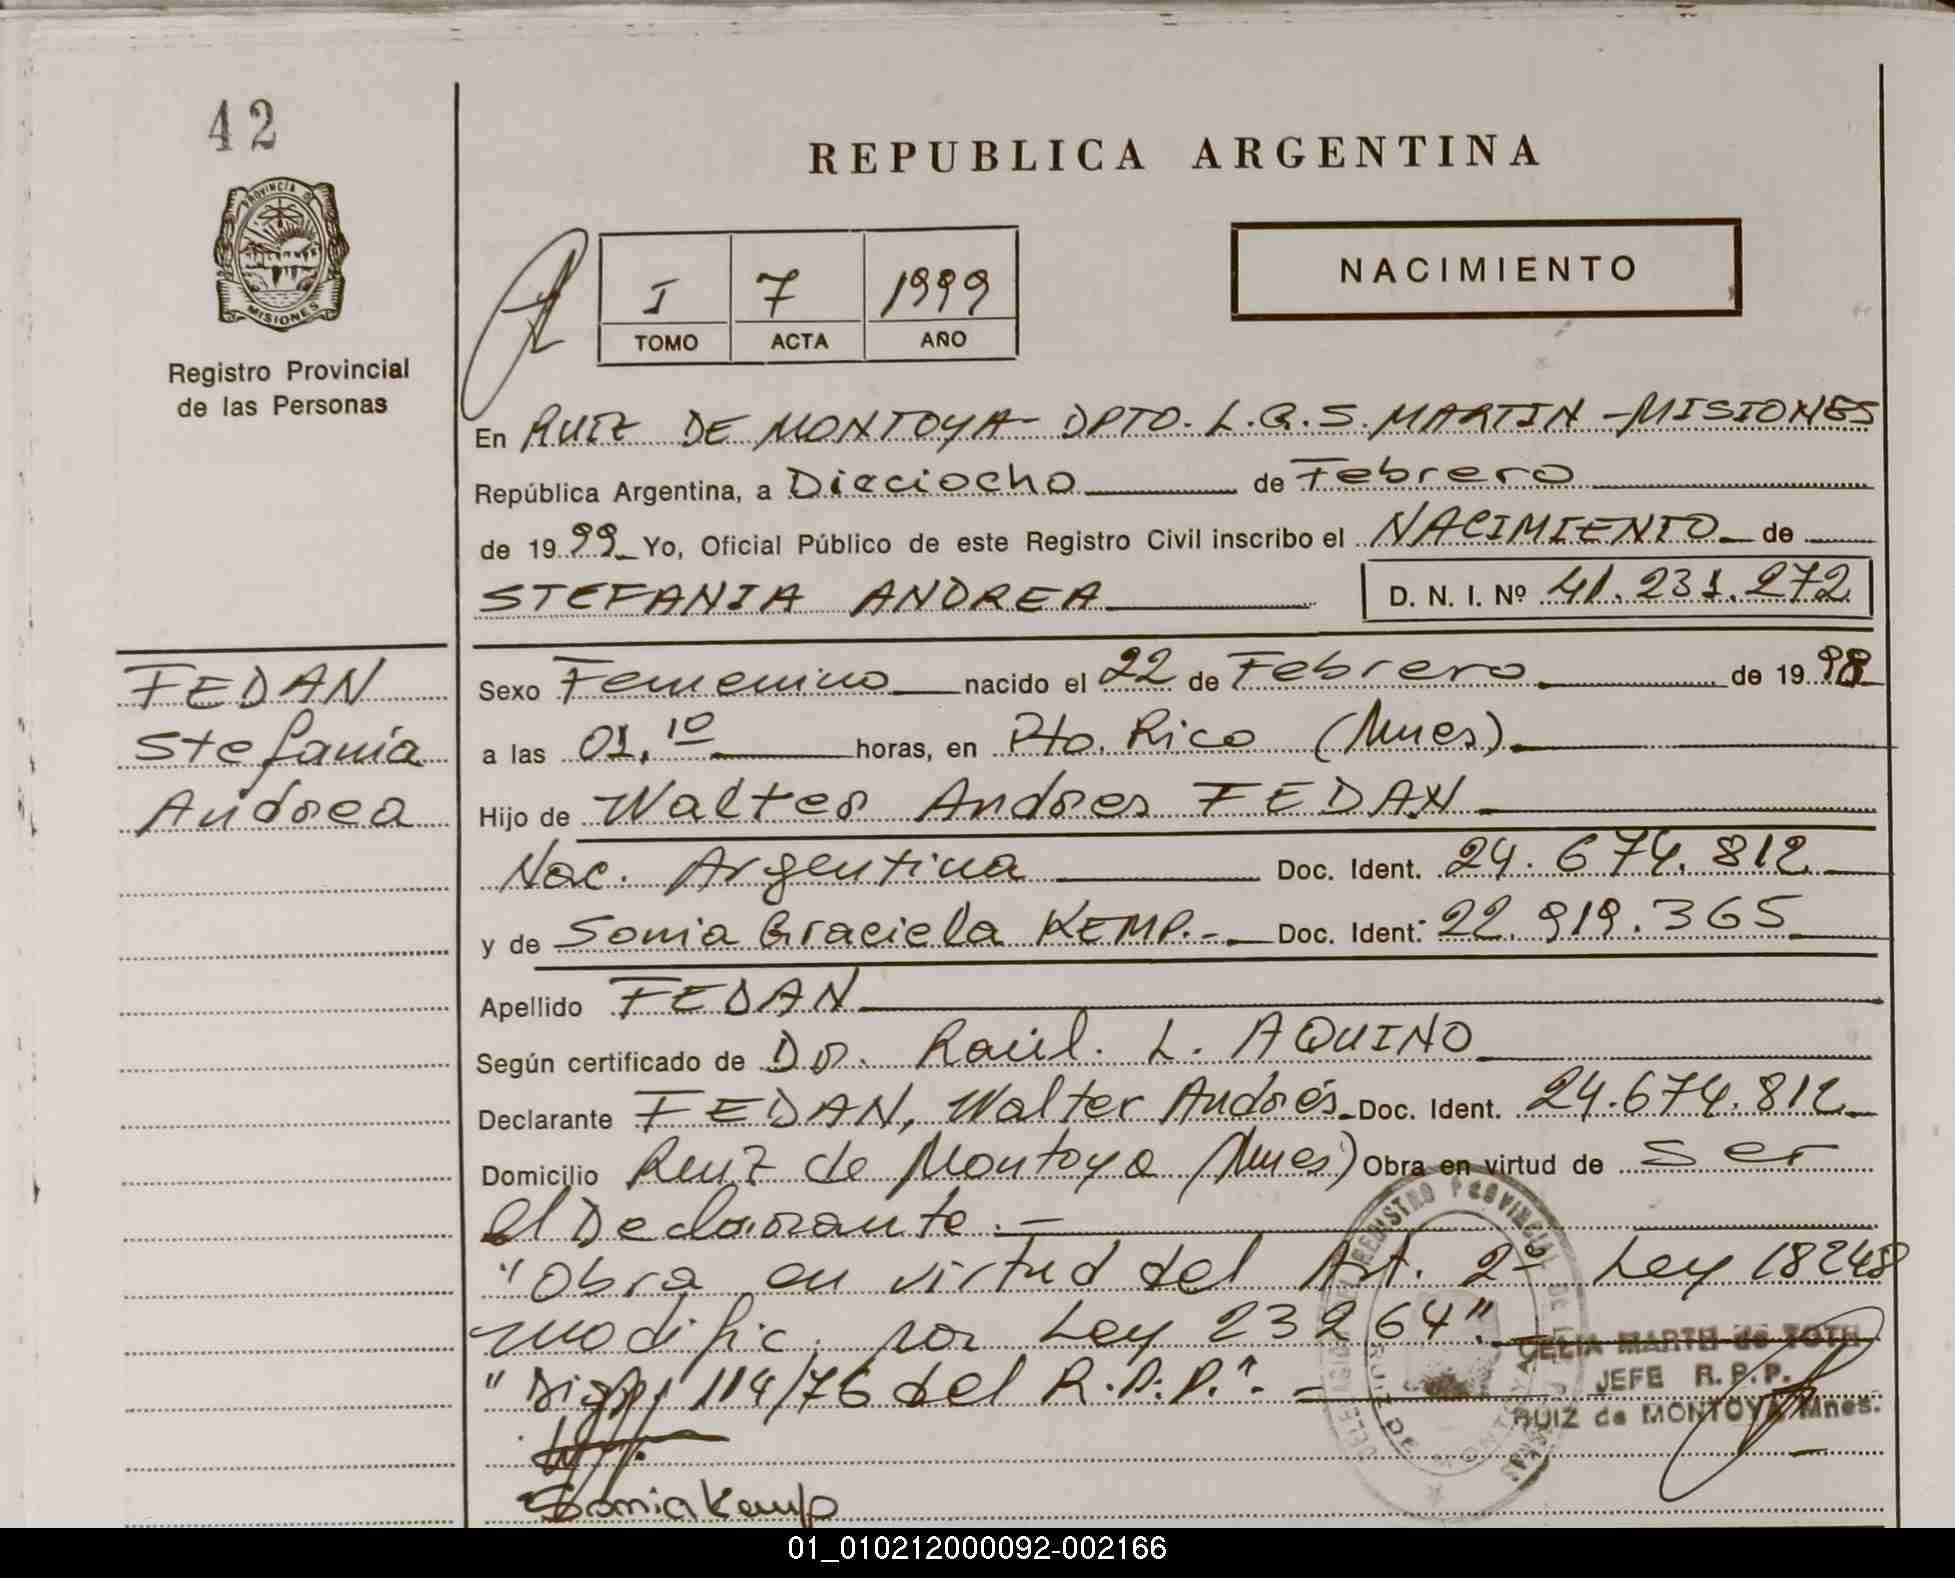 42
REPUBLICA ARGENTINA
PROVINCIA DE
MISIONES
Registro Provincial
de las Personas
I 7 1999
TOMO ACTA AÑO
NACIMIENTO
En RUIZ DE MONTOYA - DPTO. L.G.S. MARTIN - MISIONES
República Argentina, a Dieciocho de Febrero
de 1999 Yo, Oficial Público de este Registro Civil inscribo el NACIMIENTO de
STEFANIA ANDREA D. N. I. Nº 41.231.272
FEDAN
Stefanía
Andrea
Sexo Femenino nacido el 22 de Febrero de 1998
a las 01,10 horas, en Pto. Rico (Mnes).
Hijo de Walter Andres FEDAN
Nac. Argentina Doc. Ident. 24.674.812
y de Sonia Graciela KEMP.- Doc. Ident: 22.919.365
Apellido FEDAN
Según certificado de Dr. Raúl. L. AQUINO
Declarante FEDAN, Walter Andrés Doc. Ident. 24.674.812
Domicilio Ruiz de Montoya (Mnes) Obra en virtud de ser
el Declarante.-
"Obra en virtud del Art. 2º Ley 18248
modific. por Ley 23264".
"Disp. 114/76 del R.P.P.".-
CELIA MARTH de TOTH
JEFE R.P.P.
RUIZ de MONTOYA Mnes.
Sonia Kemp
01_010212000092-002166